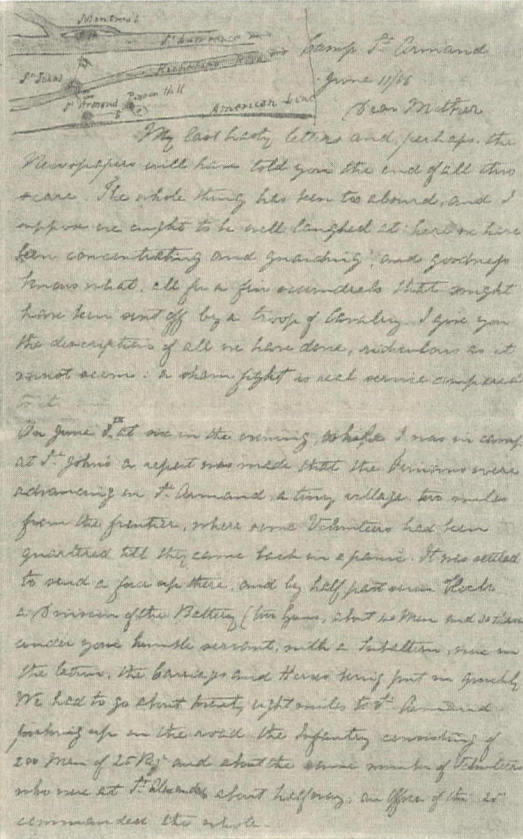 Montreal
St Lawrence
Richelieu River
St Johns
Pigeon Hill
St Armand
American Line
Camp St Armand
June 11/66
Dear Mother
My last hasty letters and, perhaps, the
Newspapers will have told you the end of all this
scare. The whole thing has been too absurd, and I
suppose we ought to be well laughed at: here we have
been concentrating and guarding, and goodness
knows what, all for a few scoundrels that might
have been sent off by a troop of Cavalry. I give you
the description of all we have done, ridiculous as it
must seem: a sham fight is real service compared
to it.
On June 8th at six in the evening, I was in camp
at St Johns a report was made that the Fenians were
advancing on St Armand, a tiny village, two miles
from the frontier, where some Volunteers had been
quartered till they came back in a panic. It was settled
to send a force up there, and by half past seven
a Division of the Battery (two Guns, about 40 Men and 30 Horses
under your humble servant, with a Subaltern, were in
the train, the Carriages and Horses being put in quickly
We had to go about twenty eight miles to St Armand
picking up on the road the Infantry consisting of
200 Men of 25 Regt and about the same number of Volunteers
who were at St Alexandre about halfway; an Officer of the 25
commanded the whole.